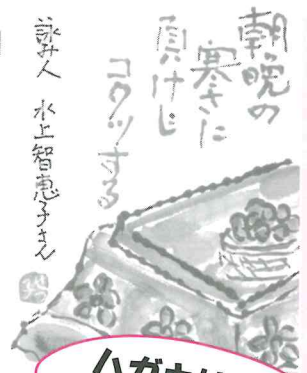 朝晩の
寒さに
負けじ
コタツする
詠み人 水上智恵子さん